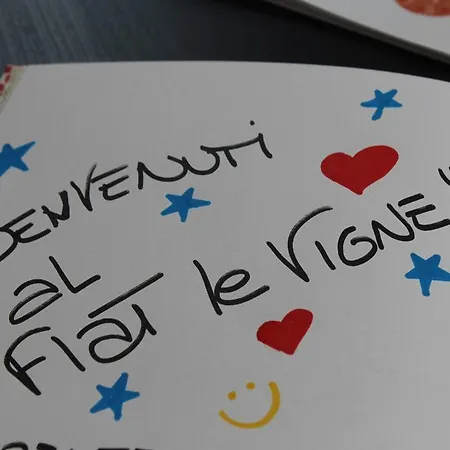 BENVENUTi
aL
Flat le VIGNE!